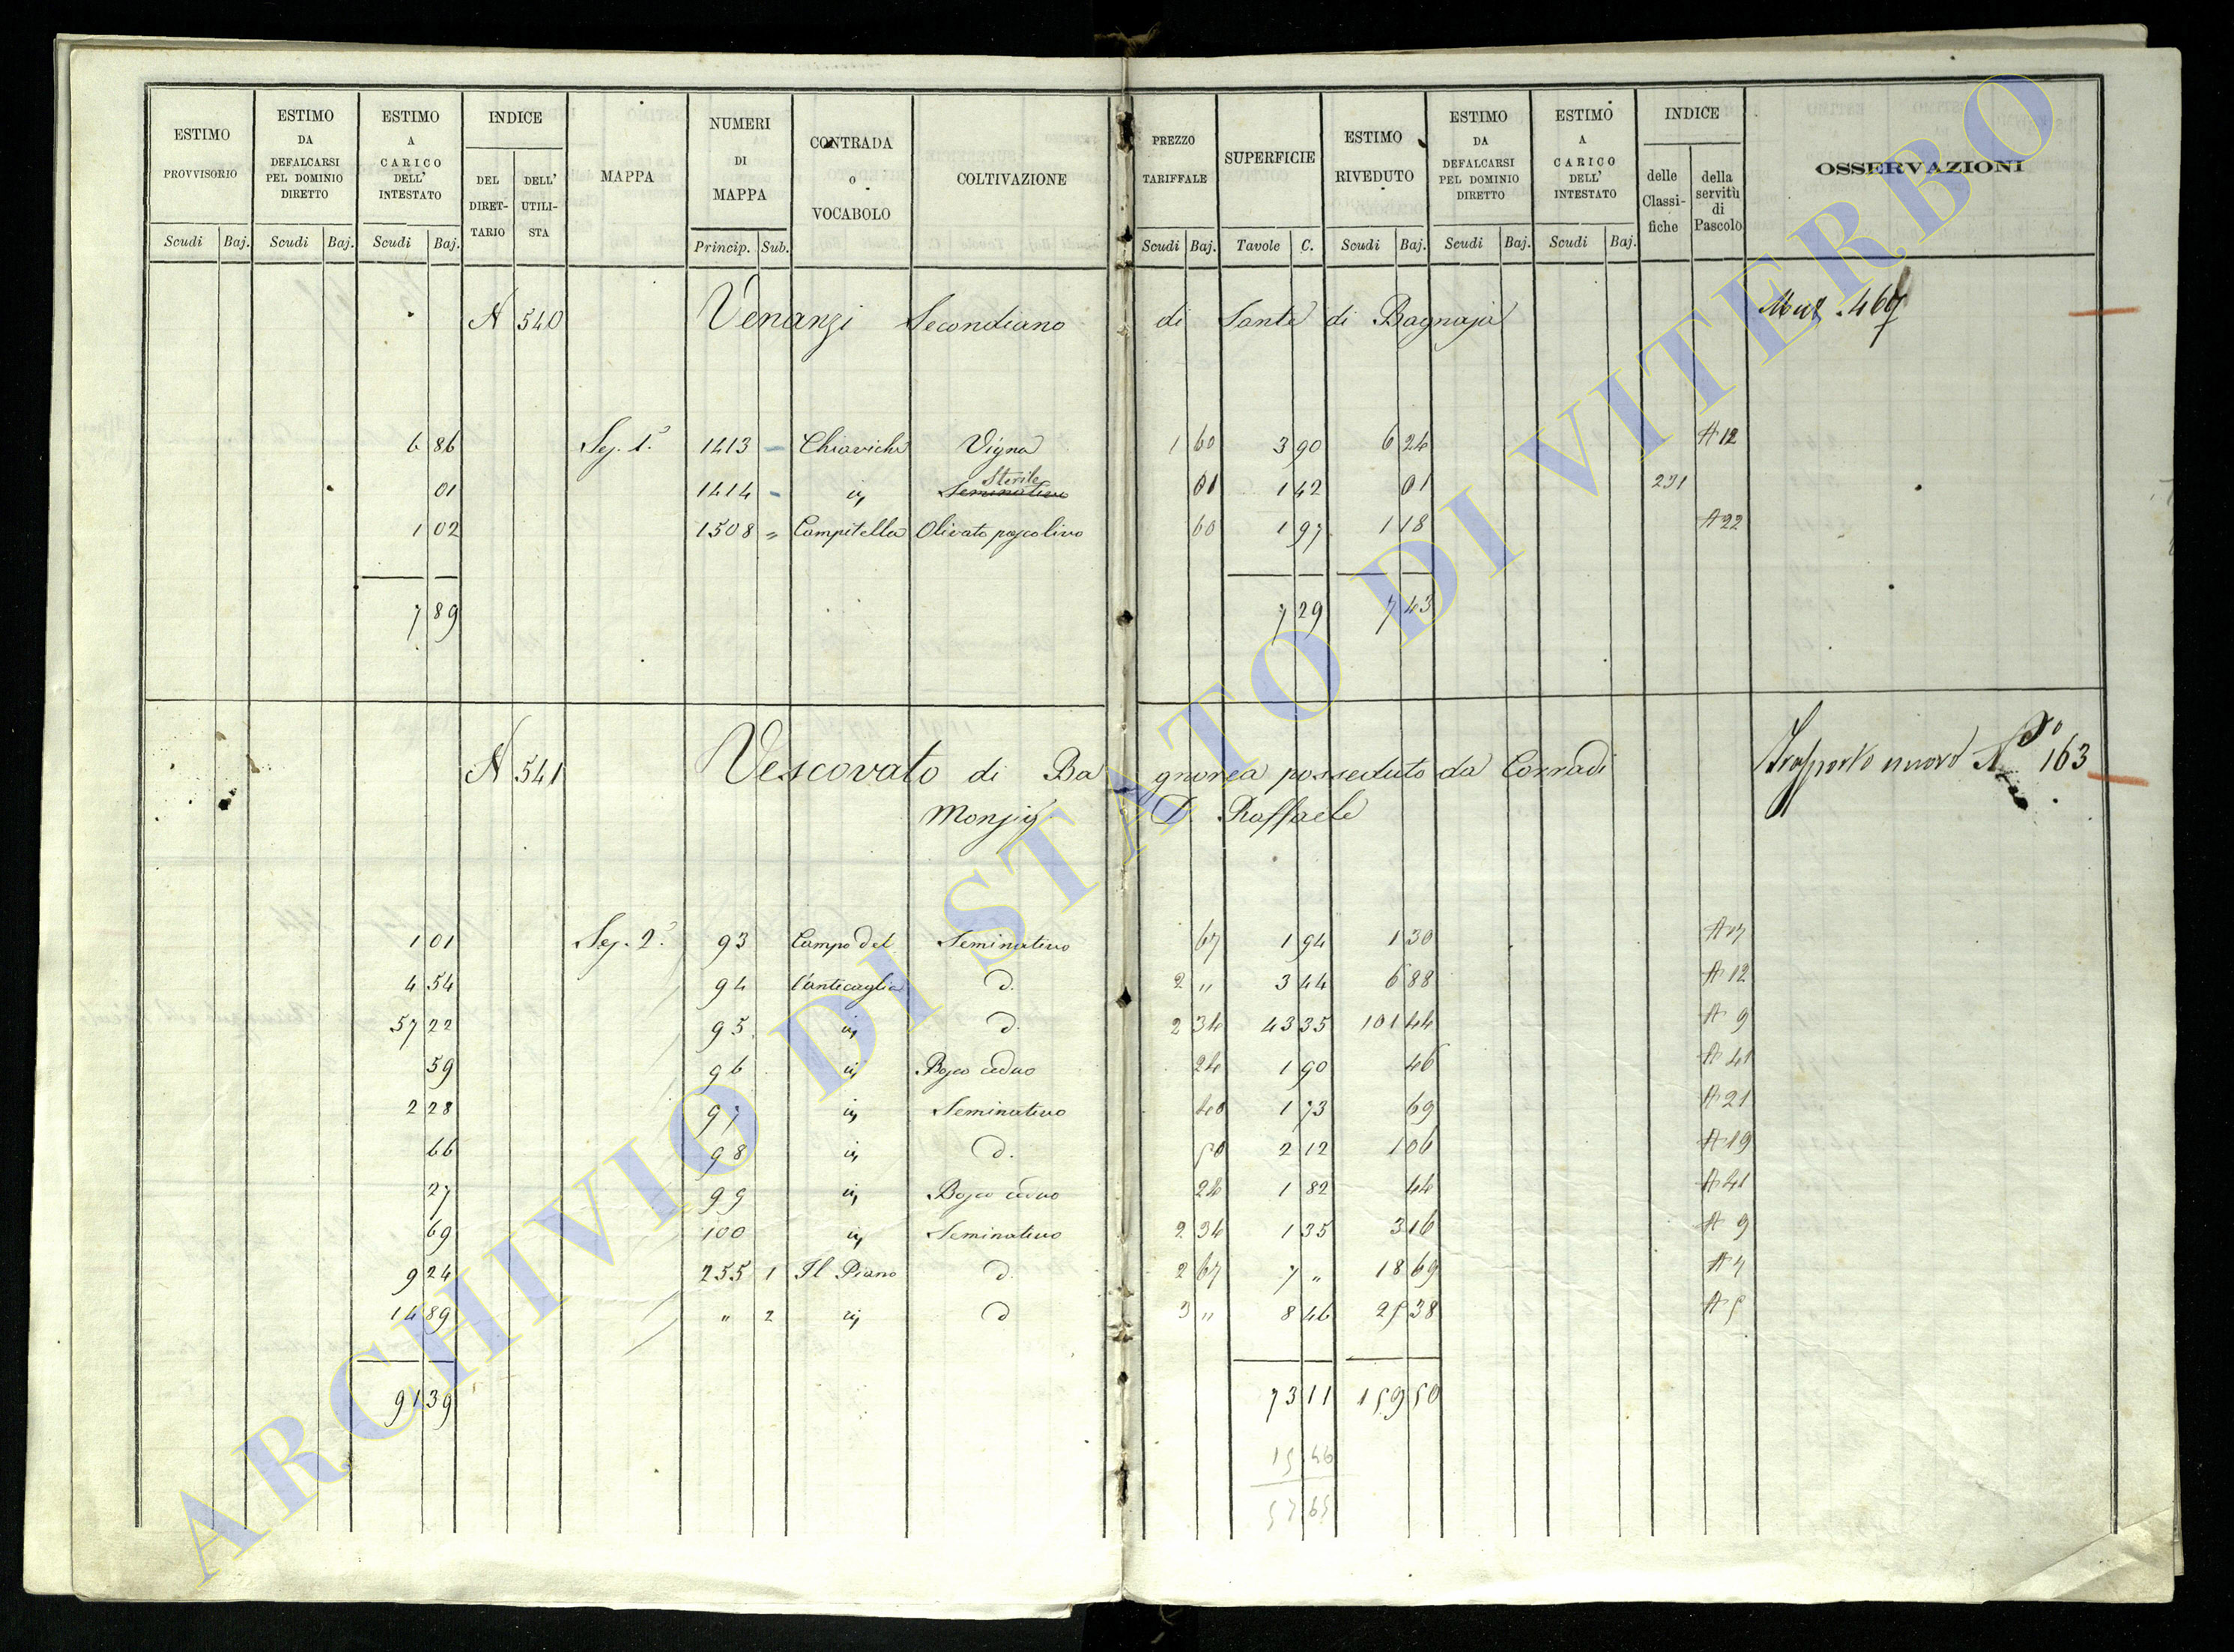 ESTIMO PROVVISORIO Scudi Baj. | ESTIMO DA DEFALCARSI PEL DOMINIO DIRETTO Scudi Baj. | ESTIMO A CARICO DELL' INTESTATO Scudi Baj. | INDICE DEL DIRET-TARIO | DELL' UTILI-STA | MAPPA | NUMERI DI MAPPA Princip. Sub. | CONTRADA O VOCABOLO | COLTIVAZIONE | PREZZO TARIFFALE Scudi Baj. | SUPERFICIE Tavole C. | ESTIMO RIVEDUTO Scudi Baj. | ESTIMO DA DEFALCARSI PEL DOMINIO DIRETTO Scudi Baj. | ESTIMO A CARICO DELL' INTESTATO Scudi Baj. | INDICE delle Classi-fiche | della servitù di Pascolo | OSSERVAZIONI
N 540 Venanzi Secondiano di Sante di Bagnaja
6 86 Sez. 1.a 1413 - Chiaviche Vigna 1 60 3 90 6 24 A 12
01 1414 - id Seminativo Sterile 01 1 42 01 231
1 02 1508 " Campitella Olivato pascolivo 60 1 97 1 18 A 22
7 89 7 29 7 43
N 541 Vescovato di Bagnorea posseduto da Corradi Trasporto nuovo N 163
Monsig. D. Raffaele
1 01 Sez. 2.a 93 Campo del Seminativo 67 1 94 1 30 A 17
4 54 94 l'anticaglia d. 2 " 3 44 6 88 A 12
57 22 95 id d. 2 34 43 35 101 44 A 9
59 96 id Bosco ceduo 24 1 90 46 A 41
2 28 97 id Seminativo 40 1 73 69 A 21
66 98 id d. 50 2 12 1 06 A 19
27 99 id Bosco ceduo 24 1 82 44 A 41
69 100 id Seminativo 2 34 1 35 3 16 A 9
9 24 255 1 Il Piano d. 2 67 7 " 18 69 A 7
14 89 " 2 id d 3 " 8 46 25 38 A 5
91 39 73 11 159 50
15 46
57 65
ARCHIVIO DI STATO DI VITERBO